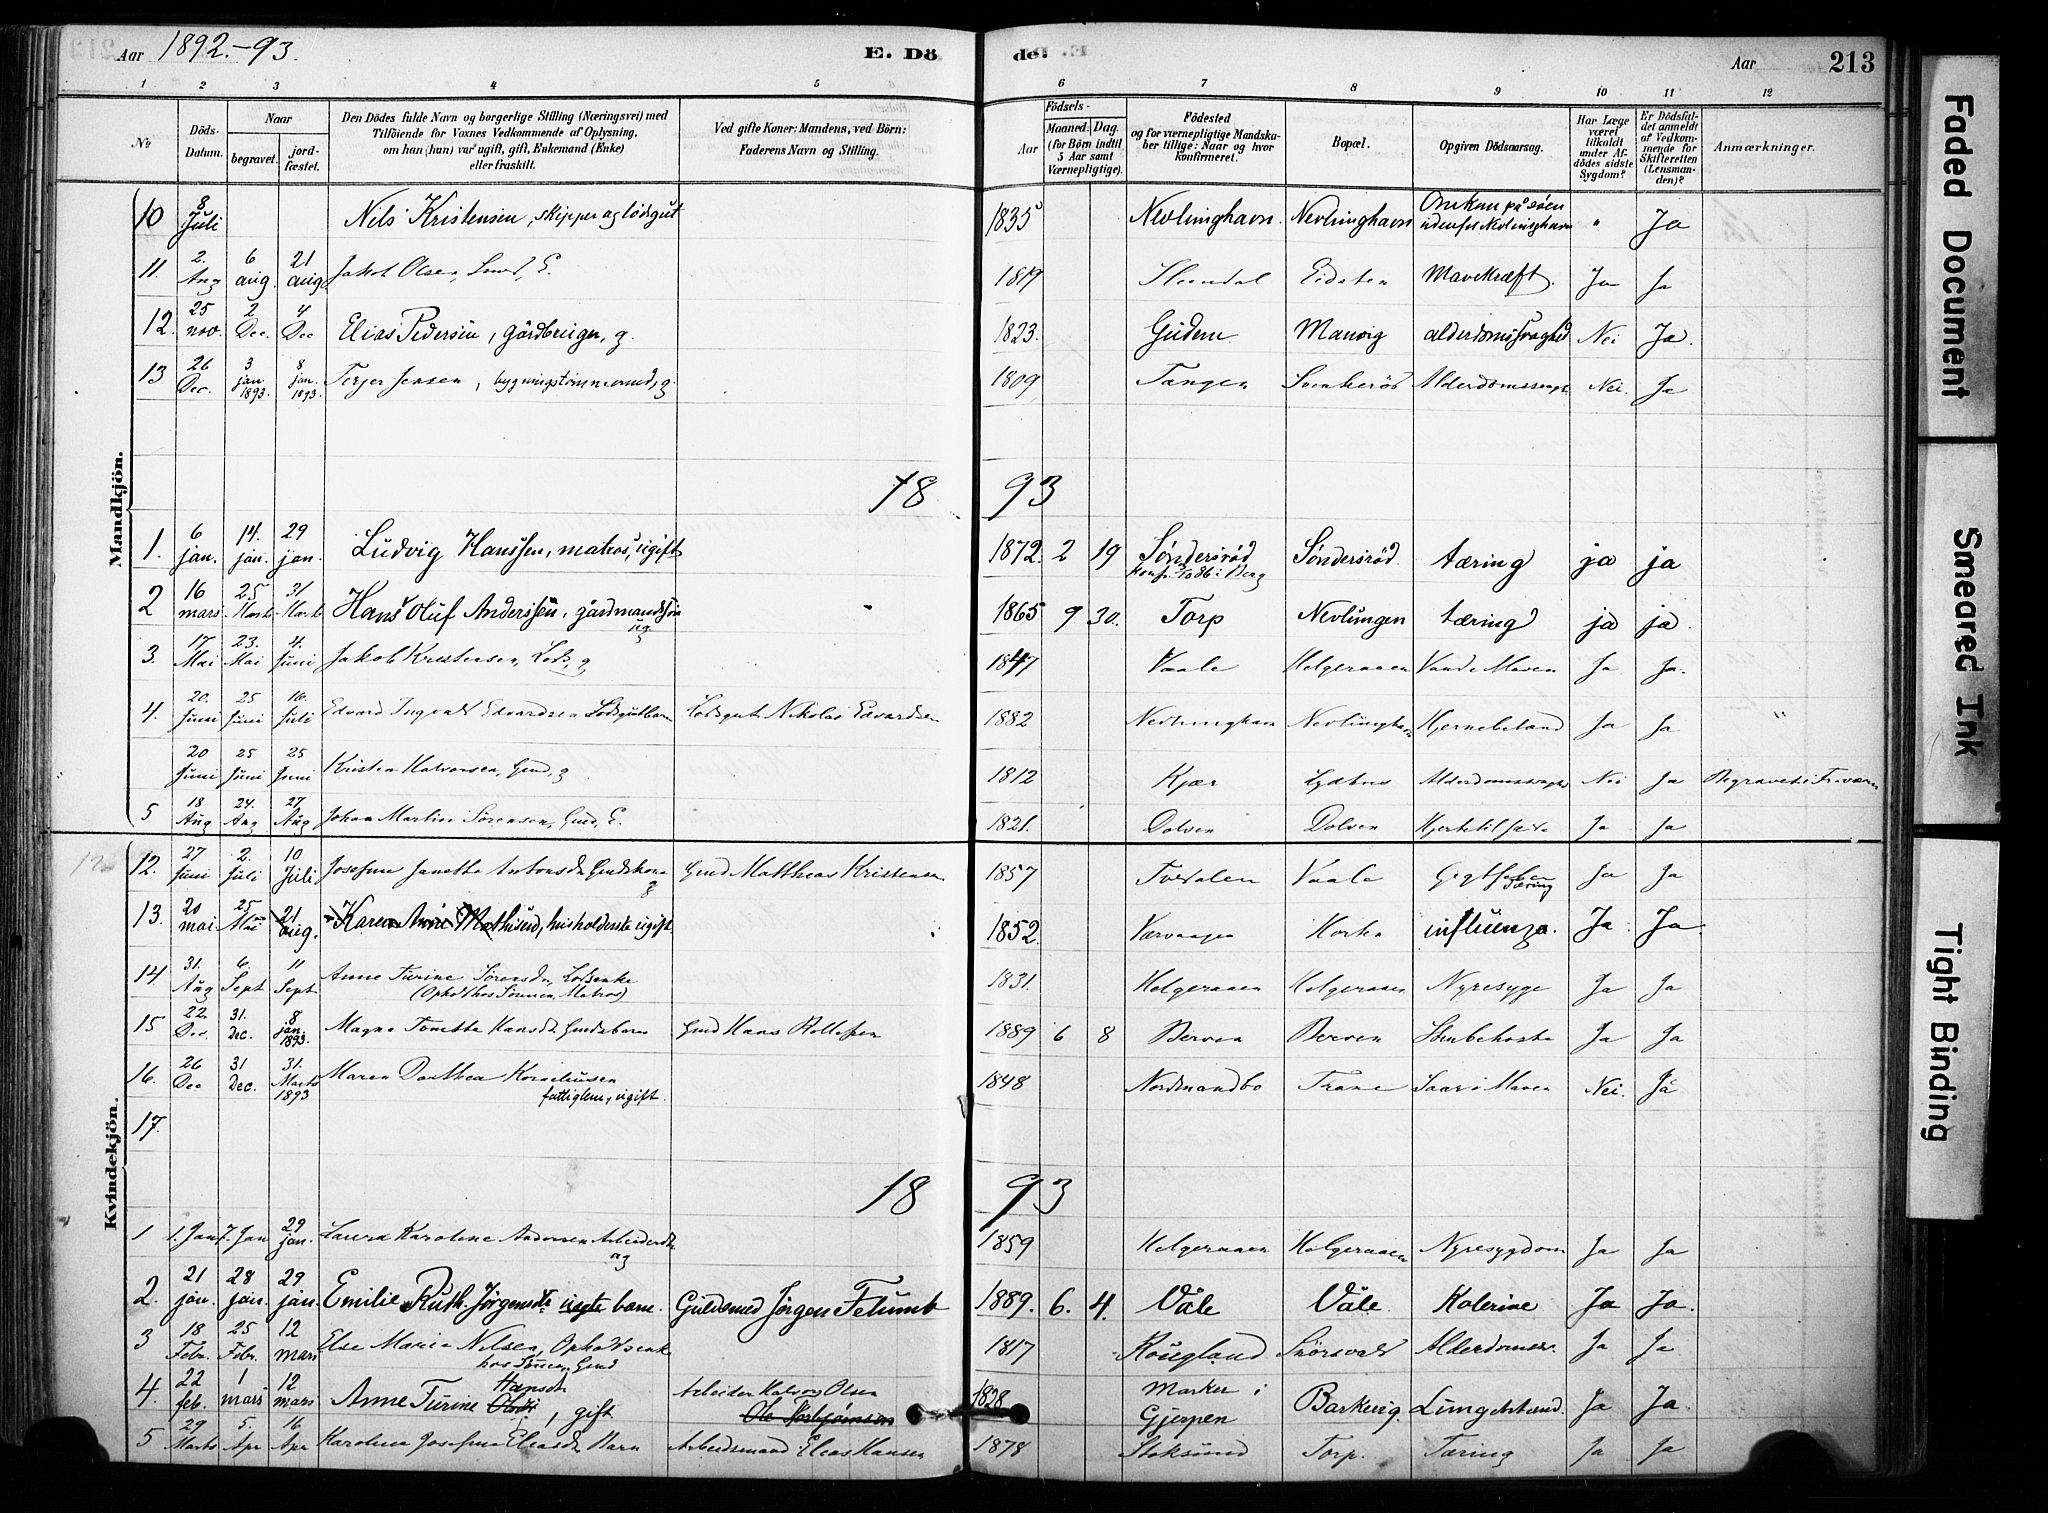 Aar 1892.-93. E. Dö de. Aar 213
1 2 3 4 5 6 7 8 9 10 11 12
№ Döds-Datum. Naar begravet. jord-fæstet. Den Dödes fulde Navn og borgerlige Stilling (Næringsvei) med Tilföiende for Voxnes Vedkommende af Oplysning, om han (hun) var ugift, gift, Enkemand (Enke) eller fraskilt. Ved gifte Koner: Mandens, ved Börn: Faderens Navn og Stilling. Födsels- Aar Maaned. Dag. (for Börn indtil 5 Aar samt Værnepligtige). Födested og for værnepligtige Mandskaber tillige: Naar og hvor konfirmeret. Bopæl. Opgiven Dödsaarsag. Har Læge været tilkaldt under Afdödes sidste Sygdom? Er Dödsfaldet anmeldt af Vedkommende for Skifteretten (Lensmanden)? Anmærkninger.
Mandkjön.
10 8 Juli Nils Kristensen, skipper og lodsgut 1835 Nevlinghavn. Nevlinghavn Omkom på søen udenfor Nevlinghavn " Ja
11. 2. Aug 6 aug. 21 aug Jakob Olsen, E. 1819 Eidsten Mavekræft. Ja Ja
12. 25 nov. 2 Dec. 4 Dec Elias Pedersen, gårdbruger, g. 1823. Gudem Manvig alderdomssvaghed Nei Ja.
13 26 Dec. 3 jan. 1893. 8 jan. 1893. Terjer Jensen, bygningstømmermd, g. 1809 Tangen Alderdomssvagh. Nei. Ja
18 93
1. 6 jan. 14. jan. 29 jan. Ludvig Hanssen, matros, ugift 1872. 2 19 Søndersrød Søndersrød. tæring ja ja
2 16 mars. 25 Marts. 31 Marts Hans Oluf Anderssen, gårdmandssøn ug 1865 9 30. Torp Nevlungen tæring ja ja.
3. 17 Mai 23. Mai 4. Juni Jakob Kristensen, Lods, g 1847 Vaale Helgeraaen Vand i Maven Ja Ja.
4. 20. Juni 25 Juni 16. Juli Edvard Ingvald Edvardsen Lodsgutbarn Lodsgut Nikolai Edvardsen 1882 Nevlinghavn Nevlinghavn Hjernebetænd Ja Ja "
20 Juni 25 Juni 25 Juni Kristen Halvorsen, Gmd, g 1812 Kjær Alderdomssvagh Nei Ja Begravet i Fr.værn
5 18 Aug 24. Aug 27 Aug Johan Martin Sørensen, Gmd, E. 1821. Dolven Dolven Ja Ja
Kvindekjön.
12. 27 Juni 2. Juli 10 Juli Josefine Janette Antonsdt Gmdskone g Gmd Matthias Kristensen 1857 Tvedalen Vaale Gigtfeber Tæring Ja Ja
13. 20 mai 25 Mai 21 aug. Karen Marie Mathisend, husholderske ugift 1852. influenza. Ja. Ja
14. 31. Aug 6. Sept 11 Sept Anne Turine Sørensdt, Lodsenke (Ophold hos Sønnen, Matros) 1831. Helgeraaen Helgeraaen Nyresyge Ja Ja
15 22. Dec. 31. Dec. 8 jan. 1893. Magna Tomette Hansdt Gmdsbarn Gmd Hans Rollefsen 1889 6 8 Berven Berven Strubehoste Ja Ja
16. 26 Dec 31 Dec. 31. Marts 1893 Maren Dorthea Korneliusen fattiglem, ugift. 1848 Nordmandbo Trane Saar i Maven Nei. Ja
17.
18 93
1 1. Jan 7. Jan 29 jan. Laura Karoline Andersen Arbeiderdt ug 1859 Helgeraaen Helgeraaen Nyresygdom Ja Ja
2. 21 jan. 28 jan. 29 jan. Emilie Ruth Jørgensdt uægte barn. Guldsmed Jørgen Felumb 1889. 6. 4. Våle Våle Kolerine Ja Ja.
3 18 Febr. 25 Febr. 12 mars Else Maria Nilsen, Opholdsenke hos Sønnen, Gmd 1817 Rougland Alderdomssv. Ja Ja
4. 22 feb. 1 mars 12 mars Anne Turine Hansdt, gift Arbeider Halvor Olsen Ole Torbjørnsen 1828 Marker i Gjerpen Barkevig. Lungebetænd. Ja Ja.
5 29 Marts 5. Apr 16 Apr Karoline Josefine Eliasdt Barn Arbeidsmand Elias Hansen 1878 Stoksund Torp. Tæring Ja Ja
Faded Document
Smeared Ink
Tight Binding